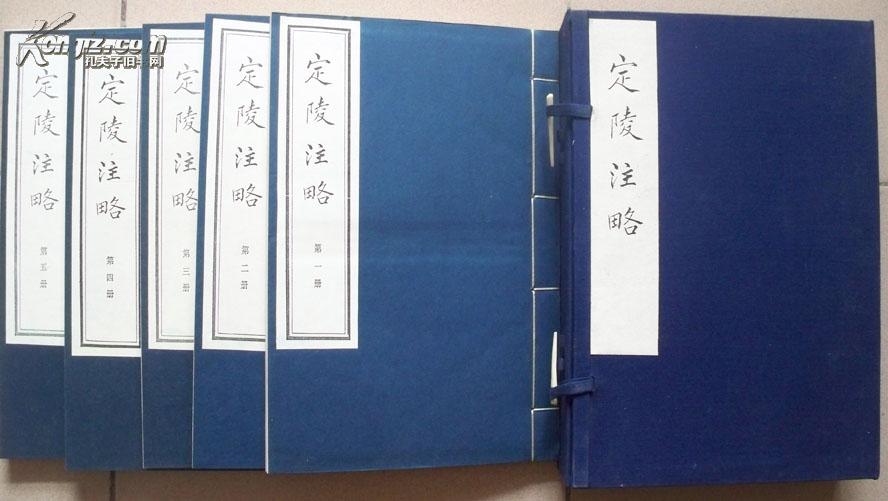 Kongfz.com
孔夫子旧书网
定陵注略
第五册
定陵注略
第四册
定陵注略
第三册
定陵注略
第二册
定陵注略
第一册
定陵注略